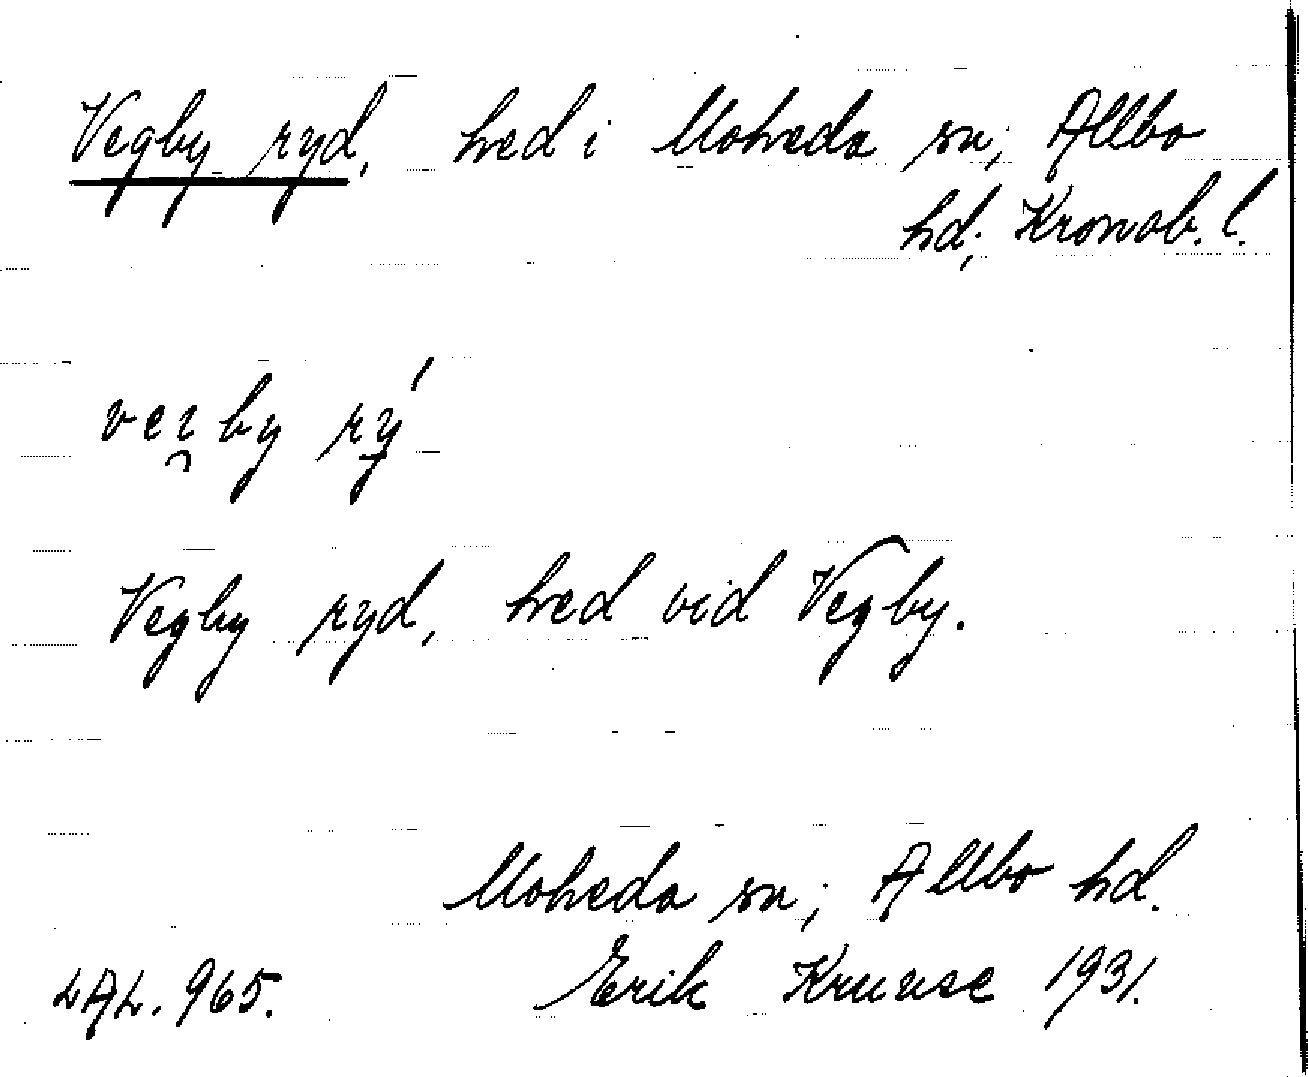 Vegby ryd, hed i Moheda sn; Allbo
hd; Kronob. l.
vei̯by rý
Vegby ryd, hed vid Vegby.
Moheda sn; Allbo hd.
LAL. 965. Erik Kruuse 1931.